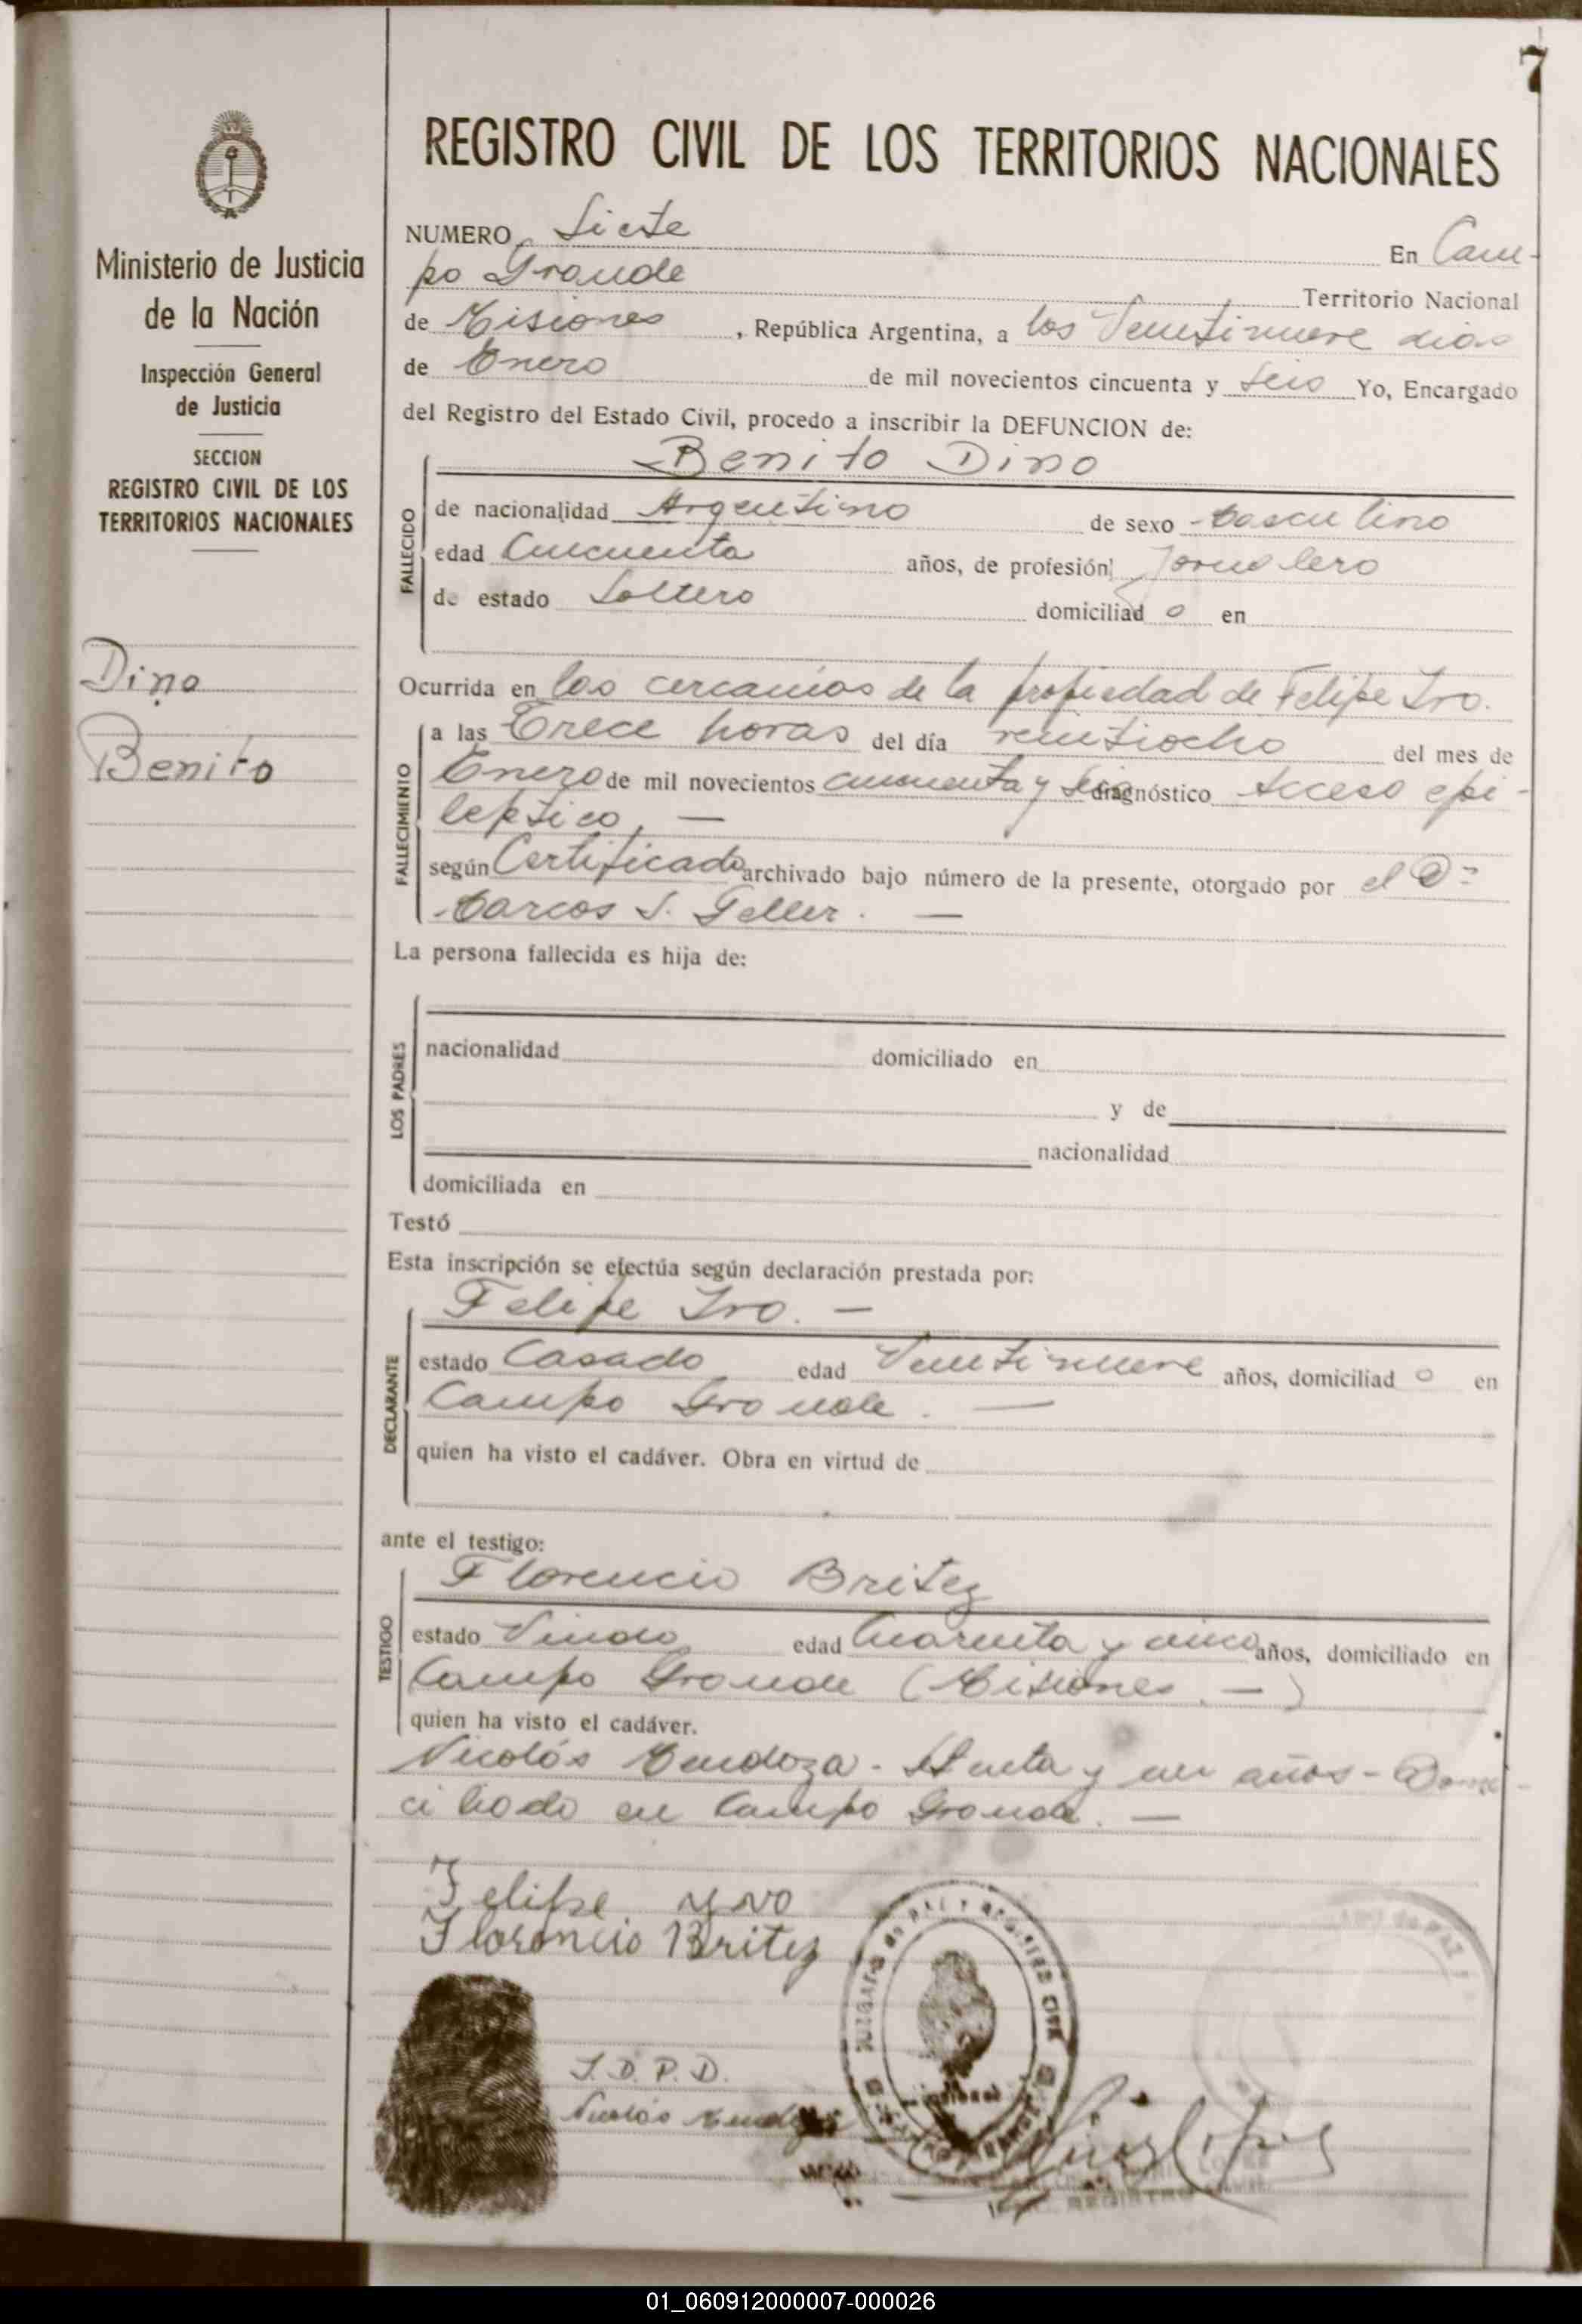 7
REGISTRO CIVIL DE LOS TERRITORIOS NACIONALES
Ministerio de Justicia
de la Nación
Inspección General
de Justicia
SECCION
REGISTRO CIVIL DE LOS
TERRITORIOS NACIONALES
Dino
Benito
NUMERO Siete En Cam-
po Grande Territorio Nacional
de Misiones, República Argentina, a los Veintinueve dias
de Enero de mil novecientos cincuenta y seis Yo, Encargado
del Registro del Estado Civil, procedo a inscribir la DEFUNCION de:
Benito Dino
FALLECIDO
de nacionalidad Argentino de sexo Masculino
edad Cincuenta años, de profesión Jornalero
de estado Soltero domiciliad o en
Ocurrida en las cercanías de la propiedad de Felipe Ivo.
FALLECIMIENTO
a las Trece horas del día veintiocho del mes de
Enero de mil novecientos cincuenta y seis diagnóstico Acceso epi-
leptico, —
según Certificado archivado bajo número de la presente, otorgado por el Dr
Marcos S. Geller. —
La persona fallecida es hija de:
LOS PADRES
nacionalidad domiciliado en
y de
nacionalidad
domiciliada en
Testó
Esta inscripción se efectúa según declaración prestada por:
Felipe Ivo. —
DECLARANTE
estado Casado edad Veintinueve años, domiciliad o en
Campo Grande. —
quien ha visto el cadáver. Obra en virtud de
ante el testigo:
Florencio Britez
TESTIGO
estado Viudo edad Cuarenta y cinco años, domiciliado en
Campo Grande (Misiones. —)
quien ha visto el cadáver.
Nicolás Mendoza - y un años - Domi-
ciliado en Campo Grande. —
Felipe yvo
Florencio Britez
I.D.P.D.
Nicolás Mendoza
JUZGADO de PAZ Y REGISTRO CIVIL
REGISTRO CIVIL
01_060912000007-000026